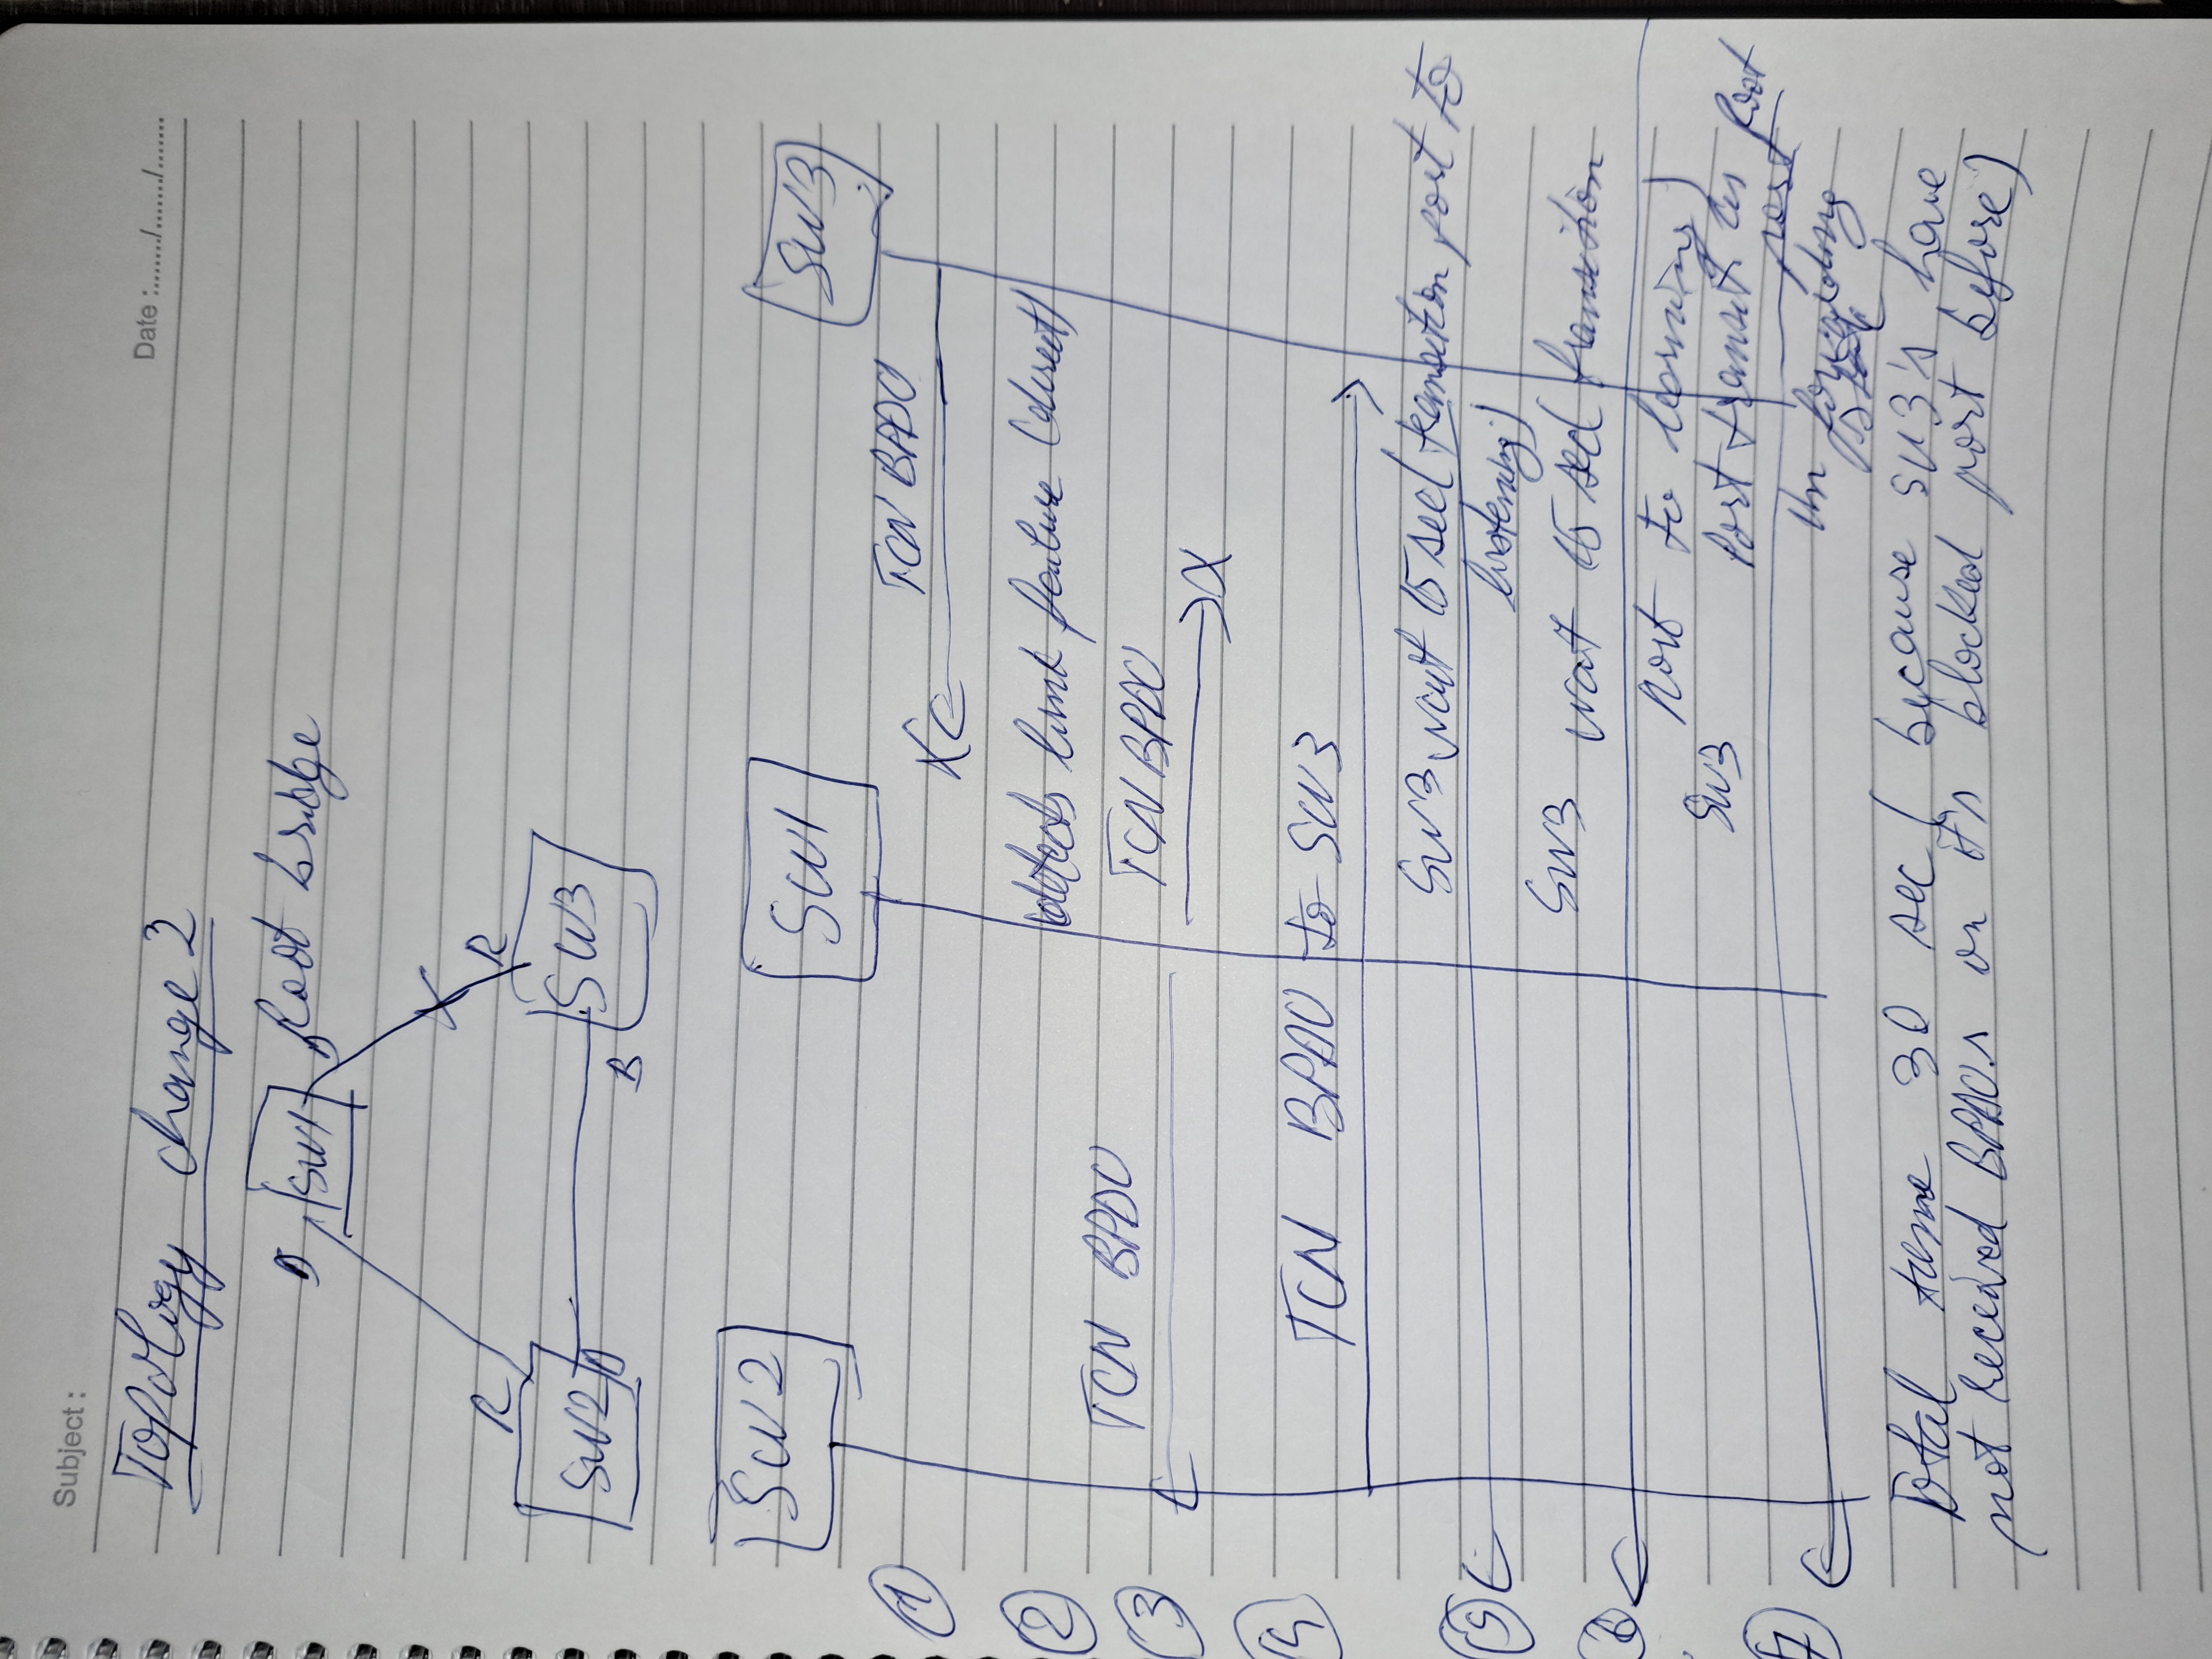 Subject :
Date :......../......./.......
Topology change 2
D SW1 D Root bridge
R
R
SW2 D
SW3
B
SW2
SW1
SW3
1
TCN BPDU
X
2
detects link failure (direct)
3
TCN BPDU
TCN BPDU
X
4
TCN BPDU to SW3
SW3 wait 15 sec (transition port to
5
listening)
SW3 wait 15 sec (transition
6
port to learning)
SW3 Port transit. as Root
port
7
in forwarding
state
Total time 30 sec (because SW3's have
not received BPDUs on it's blocked port before)